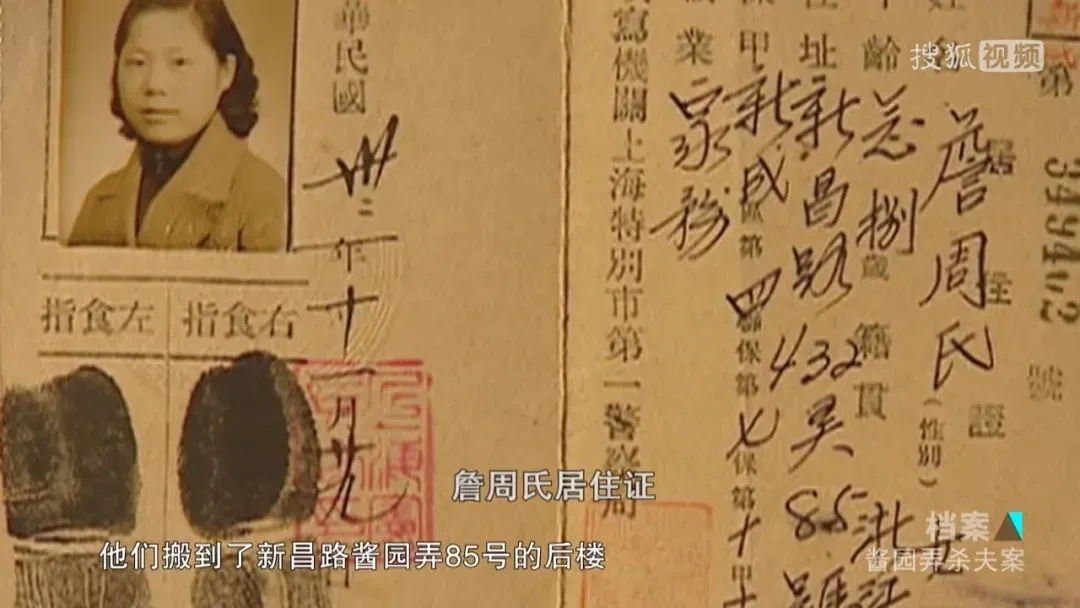 搜狐视频
第 349402 號
居住證
名 詹周氏（性別）
齡 念捌歲 籍貫 浙江
住址 新昌路432弄85
甲 新成區第四聯保第七保第十甲
業 家務
寫機關上海特別市第一警察局
華民國卅二年十一月廿九
右食指
左食指
詹周氏居住证
他们搬到了新昌路酱园弄85号的后楼
档案
酱园弄杀夫案